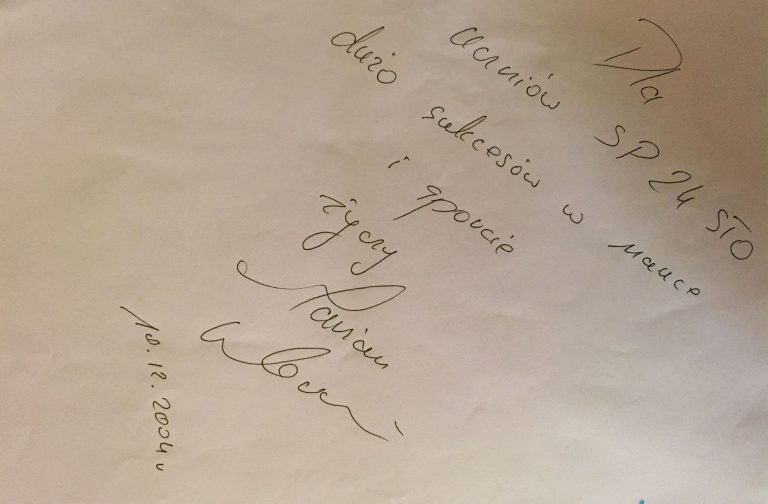 Dla
uczniów SP 24 STO
dużo sukcesów w nauce
i sporcie
życzy
Marian
Woronin
10.12.2004 r